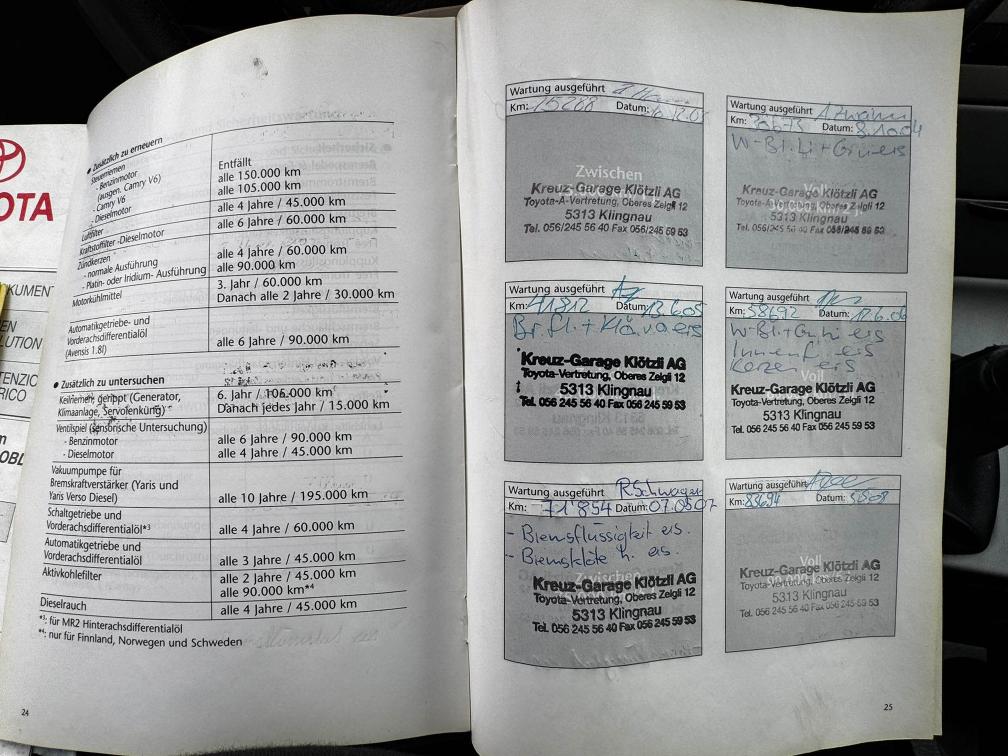 OTA
KUMEN
EN
LUTION
TENZIO
RICO
OBL
● Zusätzlich zu erneuern
Steuerriemen
- Benzinmotor
(ausgen. Camry V6)
Entfällt
- Camry V6
alle 150.000 km
- Dieselmotor
alle 105.000 km
Luftfilter
alle 4 Jahre / 45.000 km
Kraftstoffilter -Dieselmotor
alle 6 Jahre / 60.000 km
Zündkerzen
- normale Ausführung
alle 4 Jahre / 60.000 km
- Platin- oder Iridium- Ausführung
alle 90.000 km
Motorkühlmittel
3. Jahr / 60.000 km
Danach alle 2 Jahre / 30.000 km
Automatikgetriebe- und
Vorderachsdifferentialöl
(Avensis 1.8l)
alle 6 Jahre / 90.000 km
● Zusätzlich zu untersuchen
Keilriemen, gerippt (Generator,
Klimaanlage, Servolenkung)
6. Jahr / 105.000 km
Danach jedes Jahr / 15.000 km
Ventilspiel (sensorische Untersuchung)
- Benzinmotor
alle 6 Jahre / 90.000 km
- Dieselmotor
alle 4 Jahre / 45.000 km
Vakuumpumpe für
Bremskraftverstärker (Yaris und
Yaris Verso Diesel)
alle 10 Jahre / 195.000 km
Schaltgetriebe und
Vorderachsdifferentialöl*³
alle 4 Jahre / 60.000 km
Automatikgetriebe und
Vorderachsdifferentialöl
alle 3 Jahre / 45.000 km
Aktivkohlefilter
alle 2 Jahre / 45.000 km
alle 90.000 km*⁴
Dieselrauch
alle 4 Jahre / 45.000 km
*³: für MR2 Hinterachsdifferentialöl
*⁴: nur für Finnland, Norwegen und Schweden
24
Wartung ausgeführt
Km: 15288 Datum:
Zwischen
Kreuz-Garage Klötzli AG
Toyota-A-Vertretung, Oberes Zelgli 12
5313 Klingnau
Tel. 056/245 56 40 Fax 056/245 59 53
Wartung ausgeführt
Km: Datum: 8.10.04
W-Bl. li +
Voll
Kreuz-Garage Klötzli AG
Toyota-A-Vertretung, Oberes Zelgli 12
5313 Klingnau
Tel. 056/245 56 40 Fax 056/245 59 53
Wartung ausgeführt
Km: 41812 Datum: 13.6.05
Br. fl. +
Kreuz-Garage Klötzli AG
Toyota-Vertretung, Oberes Zelgli 12
5313 Klingnau
Tel. 056 245 56 40 Fax 056 245 59 53
Wartung ausgeführt
Km: 58692 Datum: 12.6.06
W-Bl. + ers
Innenf. ers
Kerzen ers
Voll
Kreuz-Garage Klötzli AG
Toyota-Vertretung, Oberes Zelgli 12
5313 Klingnau
Tel. 056 245 56 40 Fax 056 245 59 53
Wartung ausgeführt R. Schwager
Km: 71'854 Datum: 07.05.07
- Bremsflüssigkeit ers.
- Bremsklötze h. ers.
Zwischen
Kreuz-Garage Klötzli AG
Toyota-Vertretung, Oberes Zelgli 12
5313 Klingnau
Tel. 056 245 56 40 Fax 056 245 59 53
Wartung ausgeführt
Km: 83694 Datum:
Voll
Kreuz-Garage Klötzli AG
Toyota-Vertretung, Oberes Zelgli 12
5313 Klingnau
Tel. 056 245 56 40 Fax 056 245 59 53
25